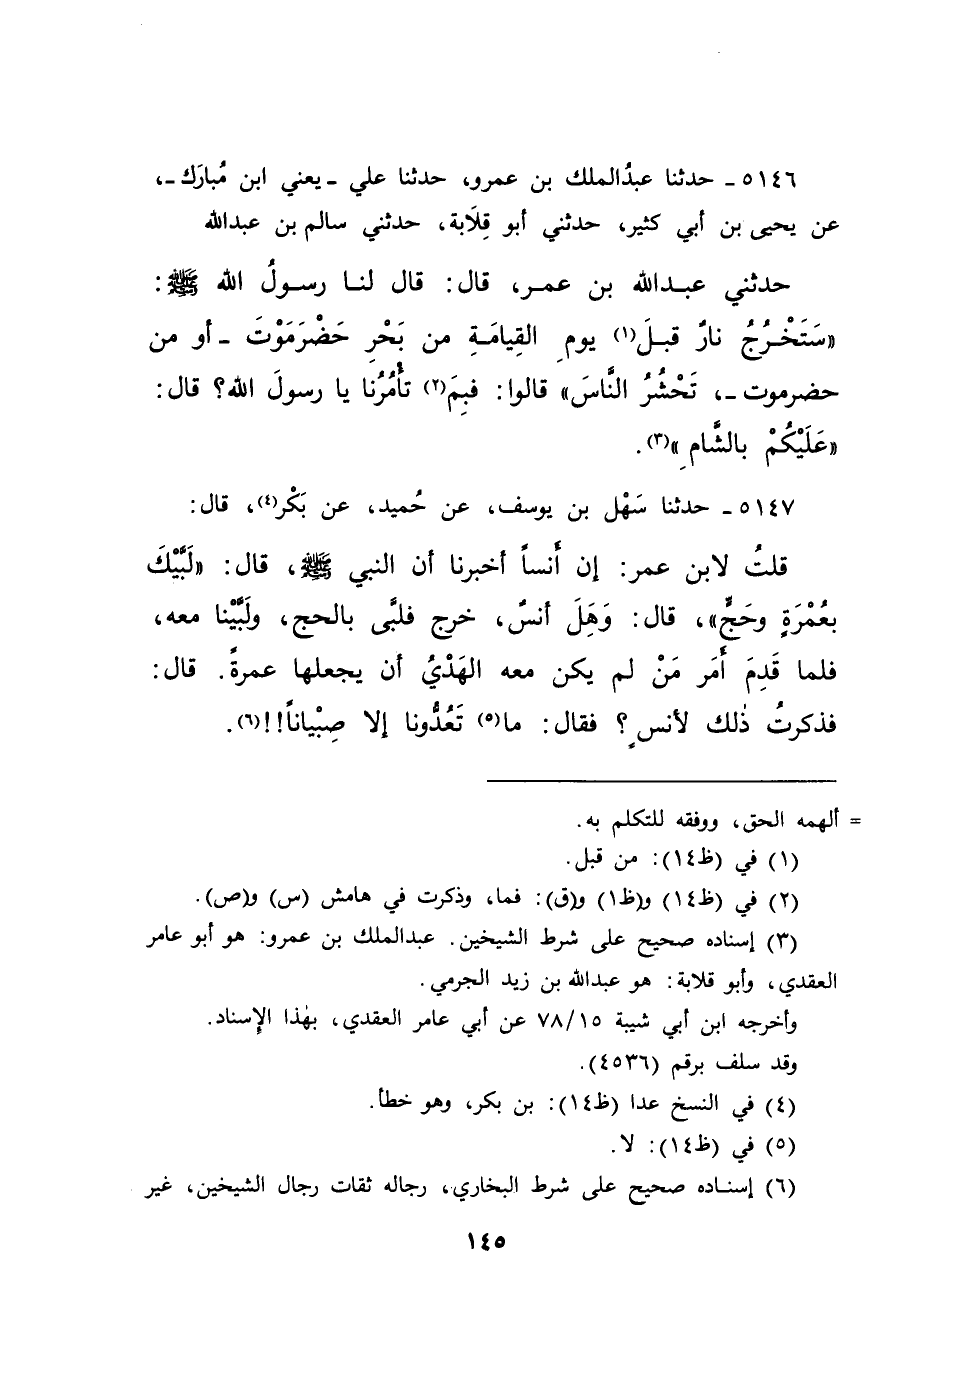 ٥١٤٦ ـ حدثنا عبدُالملك بن عمرو، حدثنا علي ـ يعني ابن مُبارَك ـ،
عن يحيى بن أبي كثير، حدثني أبو قِلَابة، حدثني سالم بن عبدالله
حدثني عبدالله بن عمر، قال: قال لنا رسولُ الله ﷺ:
«سَتَخْرُجُ نارٌ قبلَ(١) يومِ القِيامَةِ من بَحْرِ حَضْرَمَوْتَ ـ أو من
حضرموت ـ، تَحْشُرُ النَّاسَ» قالوا: فبِمَ(٢) تأْمُرُنا يا رسولَ الله؟ قال:
«عَلَيْكُمْ بالشَّامِ»(٣).
٥١٤٧ ـ حدثنا سَهْل بن يوسف، عن حُميد، عن بَكْر(٤)، قال:
قلتُ لابن عمر: إن أَنساً أخبرنا أن النبي ﷺ، قال: «لَبَّيْكَ
بعُمْرَةٍ وحَجٍّ»، قال: وَهِلَ أنسٌ، خرج فلبَّى بالحج، ولَبَّيْنا معه،
فلما قَدِمَ أَمَر مَنْ لم يكن معه الهَدْيُ أن يجعلها عمرةً. قال:
فذكرتُ ذٰلك لأنسٍ؟ فقال: ما(٥) تَعُدُّونا إلا صِبْياناً!!(٦).
= ألهمه الحق، ووفقه للتكلم به.
(١) في (ظ١٤): من قبل.
(٢) في (ظ١٤) و(ظ١) و(ق): فما، وذكرت في هامش (س) و(ص).
(٣) إسناده صحيح على شرط الشيخين. عبدالملك بن عمرو: هو أبو عامر
العقدي، وأبو قلابة: هو عبدالله بن زيد الجرمي.
وأخرجه ابن أبي شيبة ٧٨/١٥ عن أبي عامر العقدي، بهٰذا الإِسناد.
وقد سلف برقم (٤٥٣٦).
(٤) في النسخ عدا (ظ١٤): بن بكر، وهو خطأ.
(٥) في (ظ١٤): لا.
(٦) إسناده صحيح على شرط البخاري، رجاله ثقات رجال الشيخين، غير
١٤٥